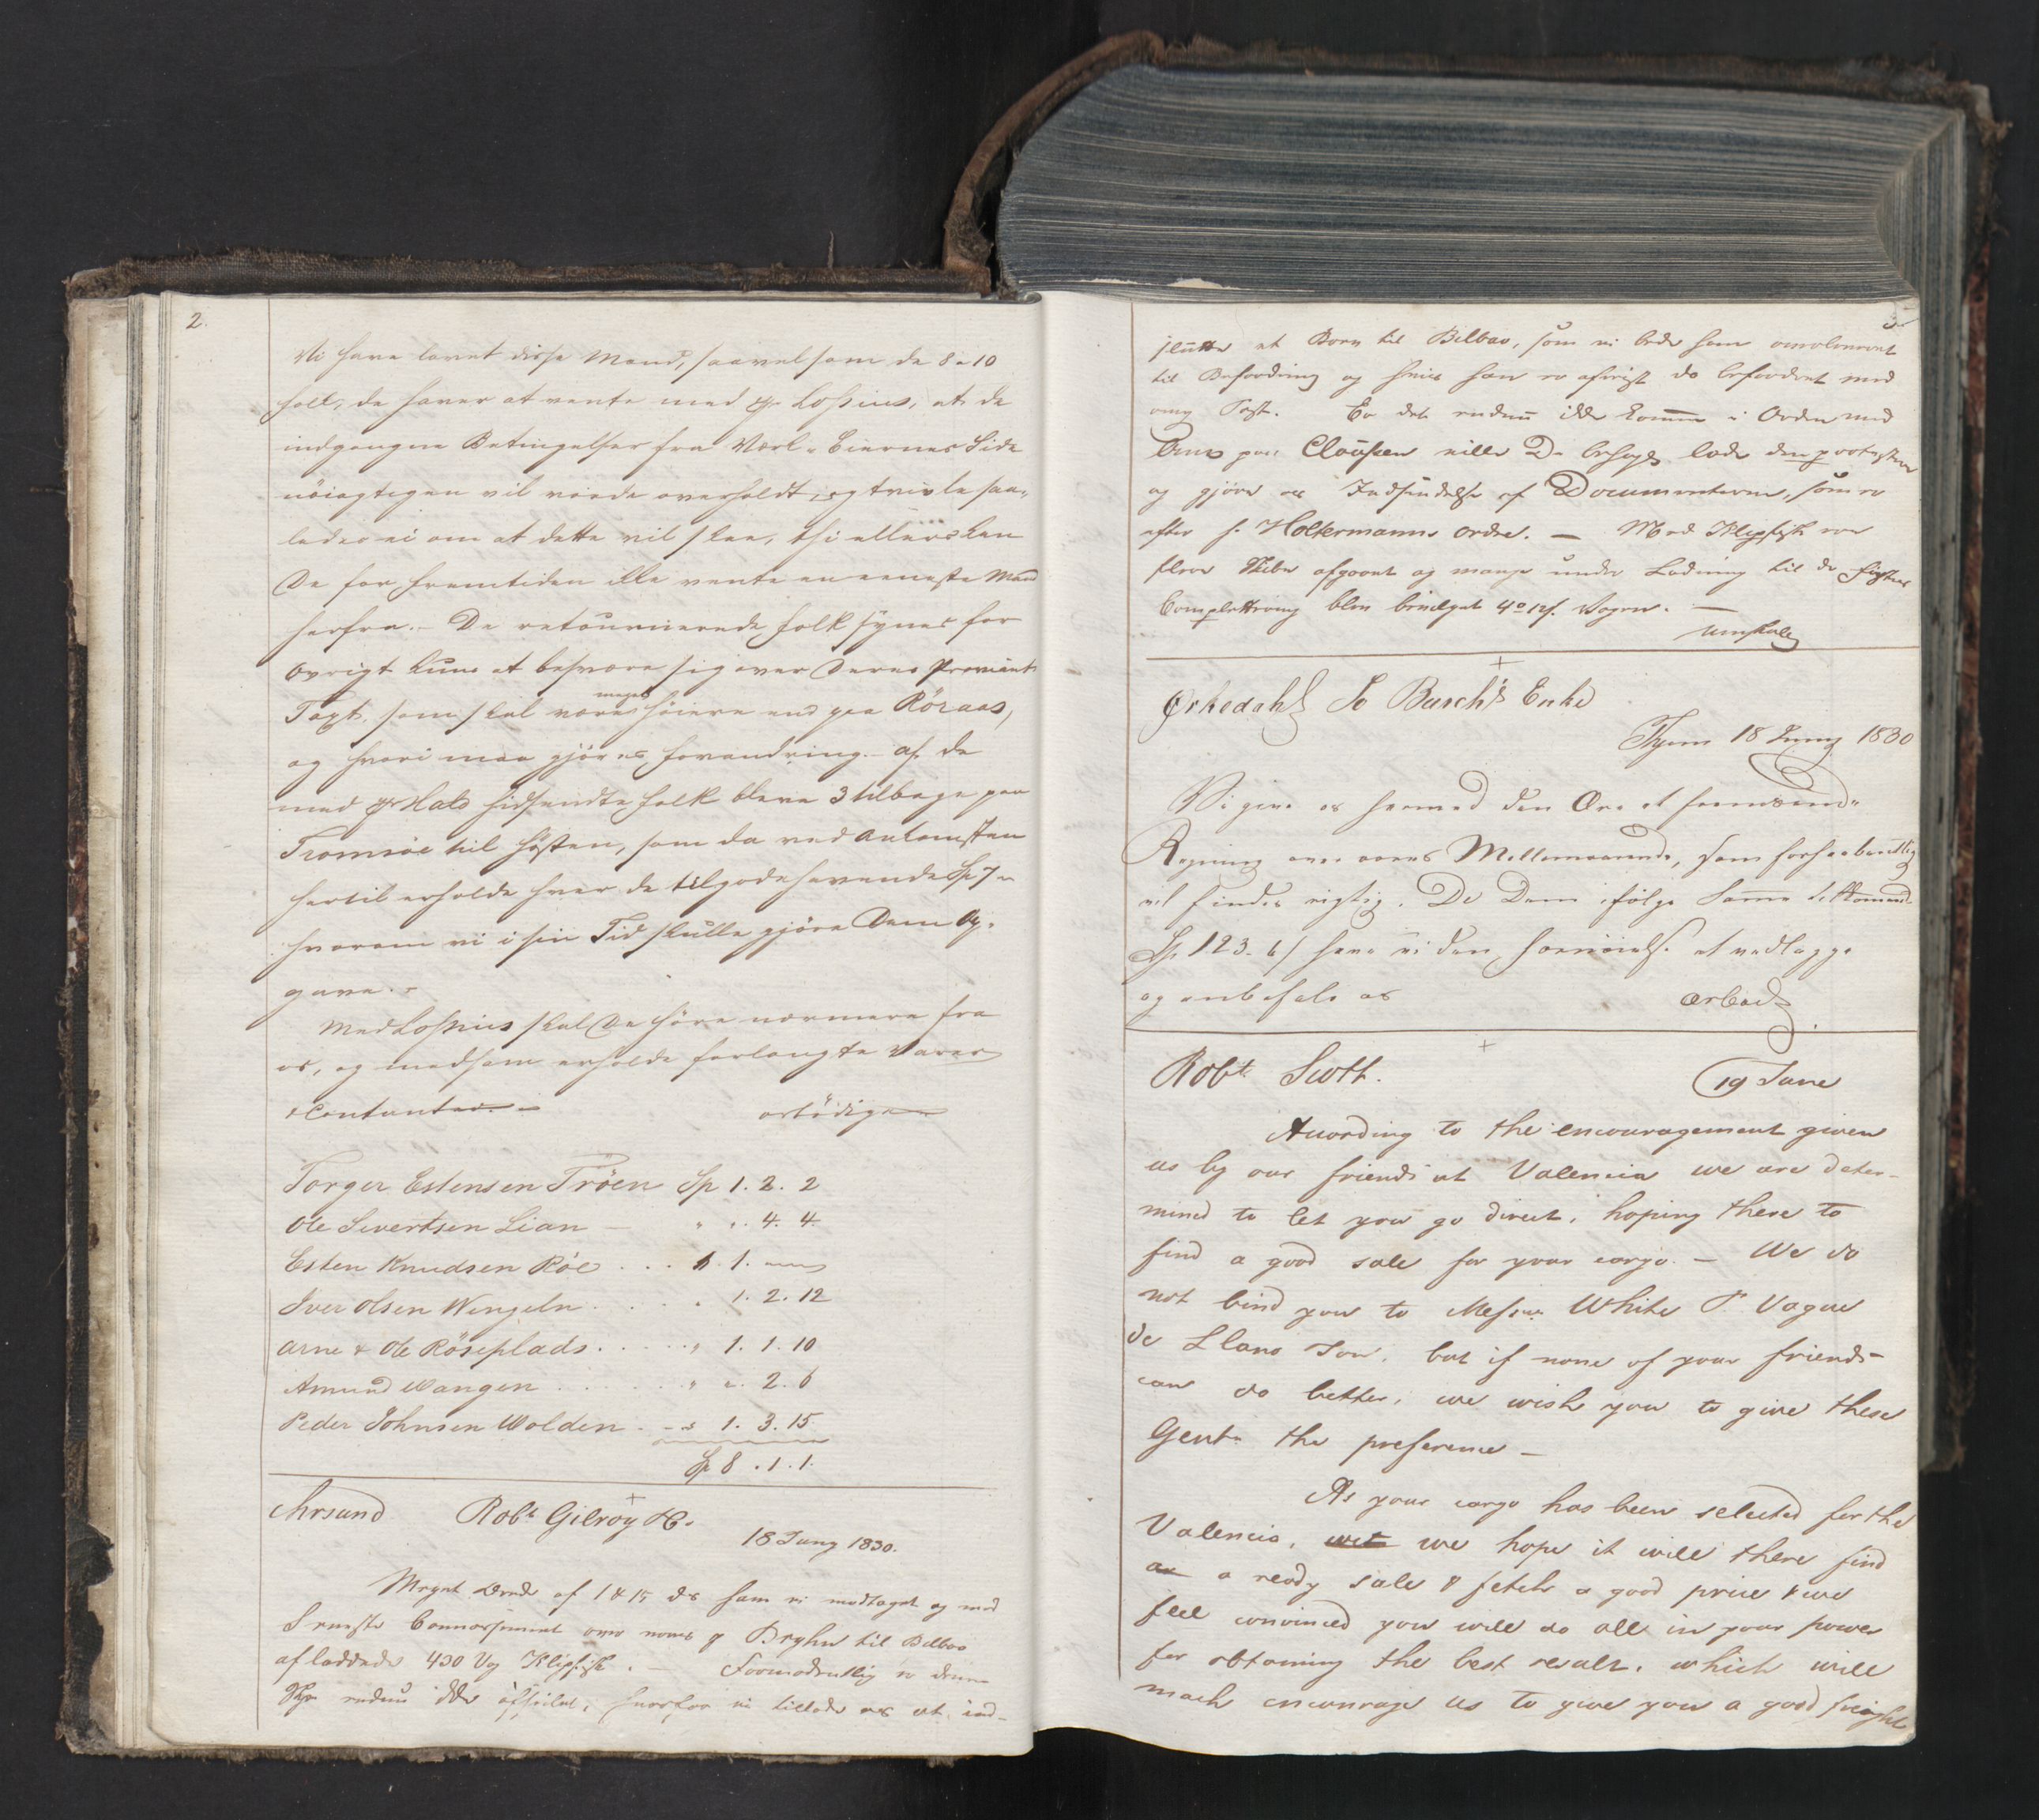 2.
Vi have lovet disse Mænd, saavelsom de 8 a 10
Folk, de haver at vente med Lossius, at de
indgangne Betingelser fra Værk-Eiernes Side
nöiagtigen vil vorde overholdt, og tvivle saa-
ledes ei om at dette vil skee, thi ellers kan
De for Fremtiden ikke vente en eeneste Mand
herfra. De retournerede Folk synes for
övrigt kuns at besvære sig over Deres Proviant
Taxt, som skal være meget höiere end paa Röraas,
og hvori maa gjöres Forandring. Af de
med Hals hidsendte Folk bleve 3 tilbage paa
Tromsöe til Hösten, som da ved Ankomsten
hertil erholde hver de tilgodehavende Sp 7 -
hvorom vi i sin Tid skulle gjöre Dem Op-
gave. -
Med Lossius skal De höre nærmere fra
os, og medsom erholde forlangte Varer
& Contanter. - erbödigen
Torger Estensen Tröen Sp 1. 2. 2
Ole Sivertsen Lian - " ". 4. 4.
Esten Knudsen Röe . . . 1. 1. "
Iver Olsen Wengeln . . . . 1. 2. 12
Arne & Ole Röseplads . . . . . " 1. 1. 10
Amund Wangen . . . . . . " ". 2. 6
Peder Johnsen Wolden . - " 1. 3. 15
Sp 8 . 1 . 1.
Chrsund Robt Gilroy
18 Juny 1830.
Meget ærede af 1 & 15 ds have vi modtaget og med
Seneste Connossement over pr Bryhn til Bilbao
afladede 430 Vog Klipfisk. - Formodentlig er denne
endnu ikke afseilet, hvorfor vi tillade os at ind-
slutte et Brev til Bilbao, som vi bede ham
til Befordring og hvis han er afreist da befordret med
Post. Er det endnu ikke kommen i Orden med
paa Claussen ville De behage lade den protestere
og gjöre os Indsendelse af Documenterne, som er
efter Holtermanns ordre. - Med Klipfisk ere
flere Skibe afgaaet og mange under Ladning til de
Complettering blev 4 Vogen. -
Ørkedahl Busch's Enke
Thjem 18 Juny 1830
Vi give os hermed den Ære at fremsende
Regning over vores Mellemværende, som forhaabentlig
vil findes rigtig. De Dem ifölge Samme tilkommende
Sp 123. 6 have vi den Fornöielse at vedlægge
og anbefale os ærbödigst
Robt Scott. 19 June
According to the encouragement given
us by our friends at Valencia we are deter-
mined to let you go direct, hoping there to
find a good sale for your cargo. - We do
not bind you to Messrs White P. Vague
de Llano Son, but if none of your friends
can do better, we wish you to give these
Gentn the preference -
As your cargo has been selected for the
Valencia, we hope it will there find
a ready sale & fetch a good price & we
feel convinced you will do all in your power
for obtaining the best result, which will
much encourage us to give you a good freight